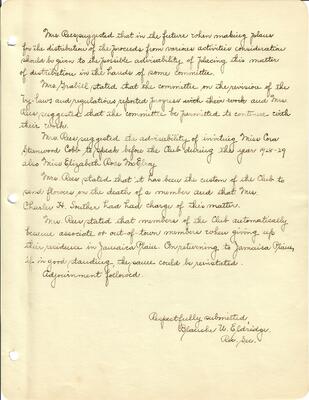 Mrs Rees, suggested that in the future when making plans
for the distribution of the proceeds from various activities consideration
should be given to the possible advisability of placing this matter
of distribution in the hands of some committee.
Mrs. Grabill, stated that the committee on the revision of the
by-laws and regulations reported progress with their work and Mrs
Rees, suggested that the committee be permitted to continue with
their work.
Mrs Rees, suggested the advisability of inviting Miss
Stanwood Cobb to speak before the Club during the year 1928-29
also Miss Elizabeth McElroy
Mrs Rees stated that it has been the custom of the Club to
send flowers on the death of a member and that Mrs.
Charles H. Souther had had charge of this matter.
Mrs Rees, stated that members of the Club automatically
became associate or out-of-town members when giving up
their residence in Jamaica Plain. On returning to Jamaica Plain,
if in good standing the same could be reinstated.
Adjournment followed.
Respectfully submitted,
Blanche W. Eldridge.
Rec. Sec.